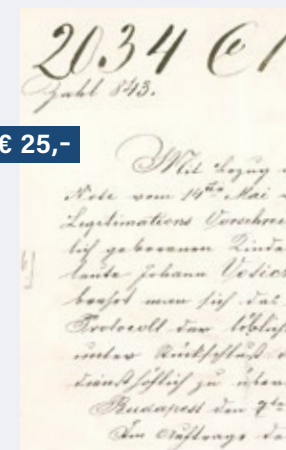 2034 C 1
Zahl 843.
€ 25,-
Mit Bezug
Note vom 14ten Mai
Legitimations Vorschrei
lich geborenen Kinde
leute Johann Vodicz
beehrt man sich das
Protocoll der löblich
unter Rückschluß
diensthöflich zu über
Budapest den 9te
Im Auftrage de